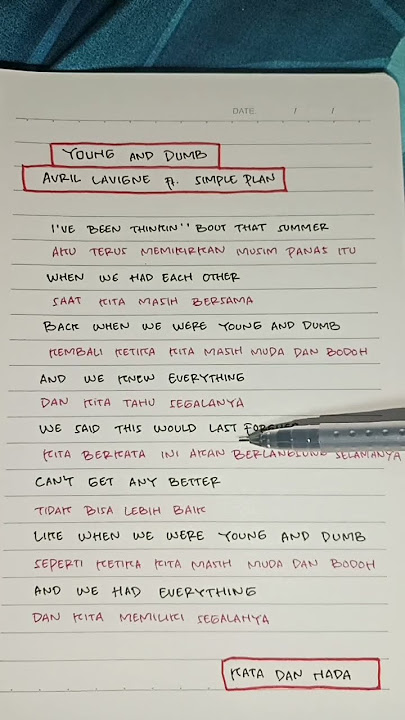 DATE / /
YOUNG AND DUMB
AVRIL LAVIGNE ft. SIMPLE PLAN
I'VE BEEN THINKIN'' BOUT THAT SUMMER
AKU TERUS MEMIKIRKAN MUSIM PANAS ITU
WHEN WE HAD EACH OTHER
SAAT KITA MASIH BERSAMA
BACK WHEN WE WERE YOUNG AND DUMB
KEMBALI KETIKA KITA MASIH MUDA DAN BODOH
AND WE KNEW EVERYTHING
DAN KITA TAHU SEGALANYA
WE SAID THIS WOULD LAST FOREVER
KITA BERKATA INI AKAN BERLANGSUNG SELAMANYA
CAN'T GET ANY BETTER
TIDAK BISA LEBIH BAIK
LIKE WHEN WE WERE YOUNG AND DUMB
SEPERTI KETIKA KITA MASIH MUDA DAN BODOH
AND WE HAD EVERYTHING
DAN KITA MEMILIKI SEGALANYA
KATA DAN NADA